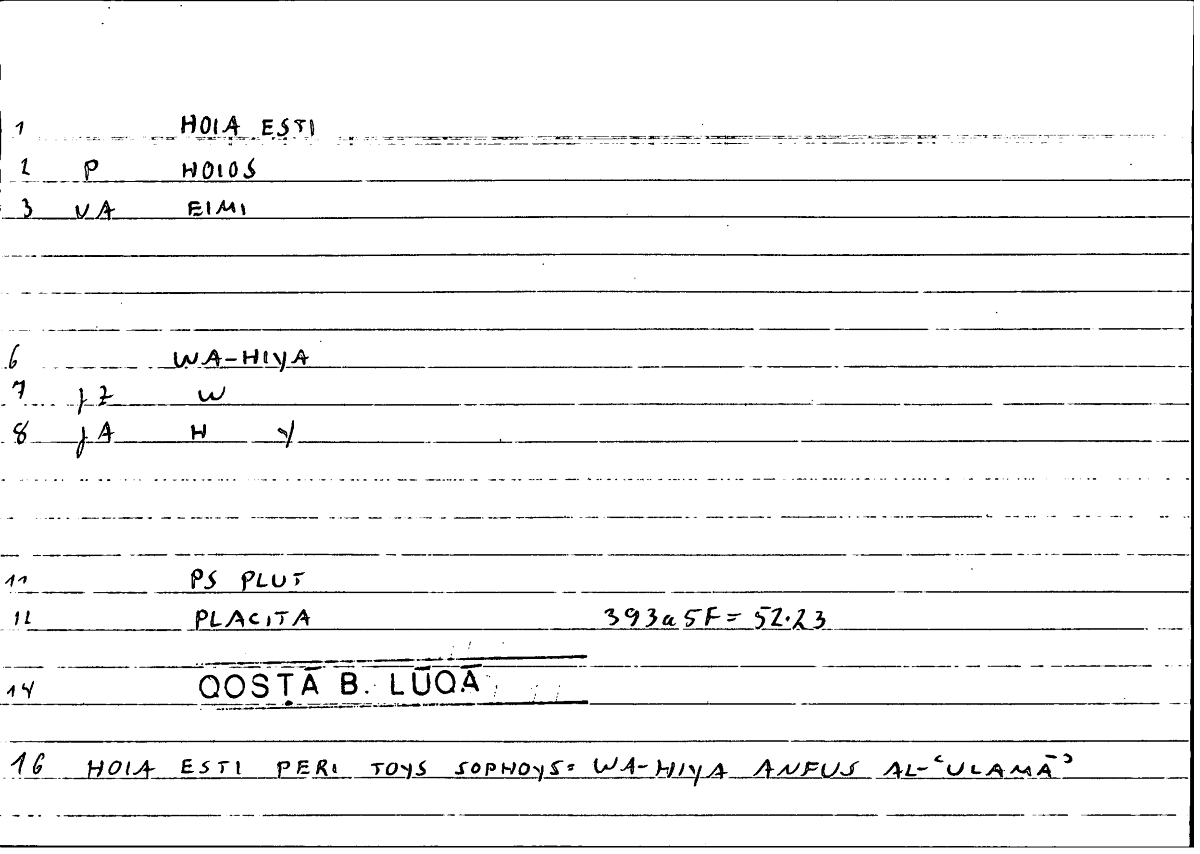 1 HOIA ESTI
2 P HOIOS
3 VA EIMI
6 WA-HIYA
7 jZ W
8 jA H Y
11 PS PLUT
12 PLACITA 393a5F= 52.23
14 QOSṬĀ B. LŪQĀ
16 HOIA ESTI PERI TOYS SOPHOYS: WA-HIYA ANFUS AL-ʿULAMĀʾ